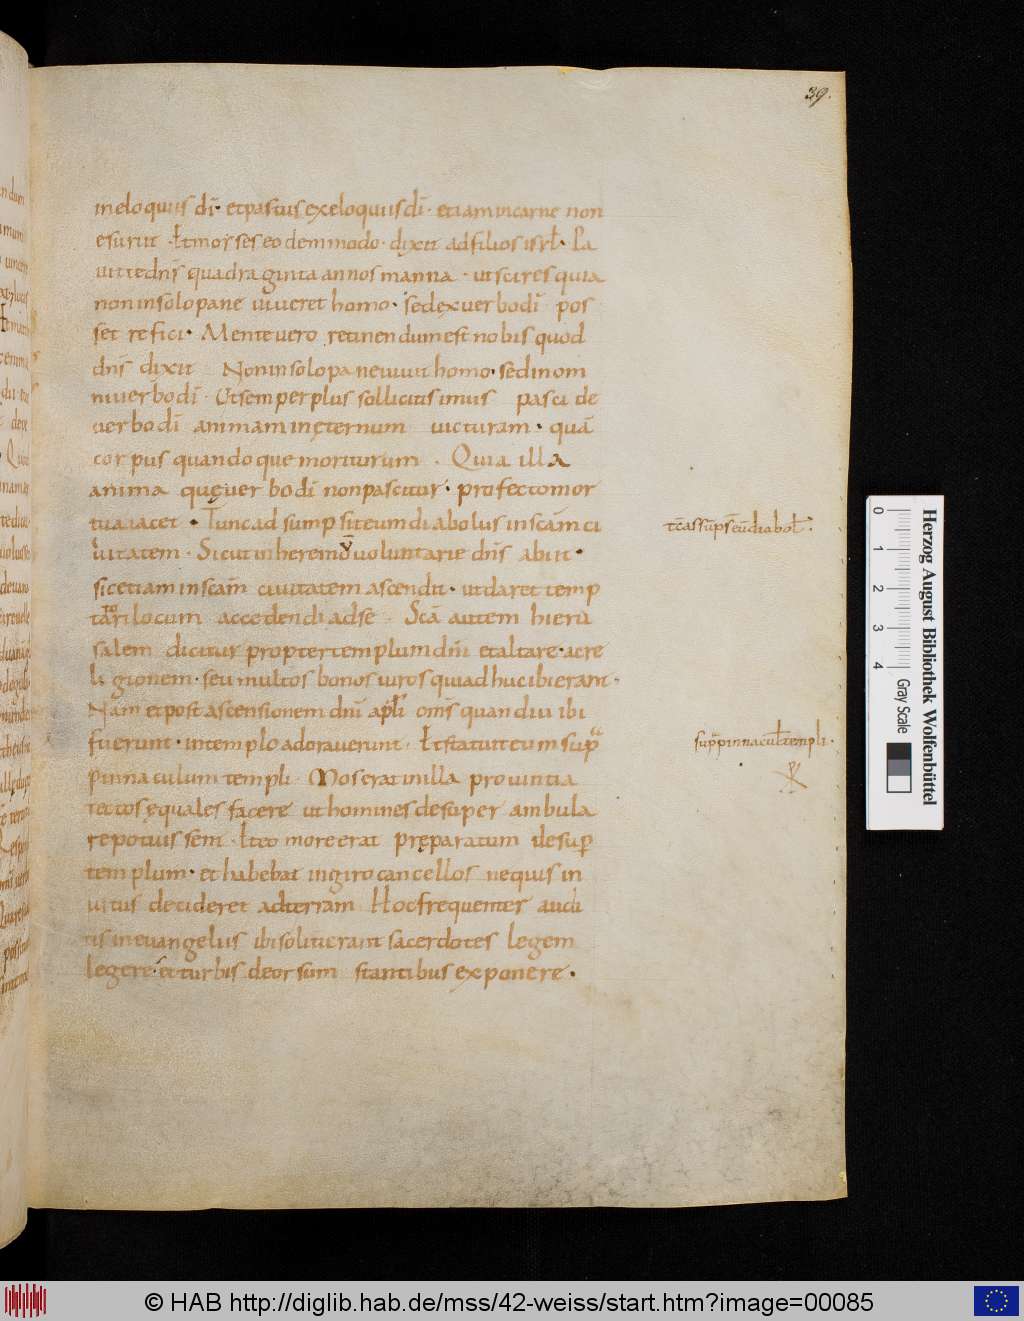 39.
in eloquiis dī· et pastus ex eloquiis dī· etiam in carne non
esuriit · Et morses eodem modo· dixit ad filios isrł· Pa
uit te dn̄s quadraginta annos manna · ut scires quia
non in solo pane uiueret homo· sed ex uerbo dī pos
set refici· Mente uero retinendum est nobis quod
dn̄s dixit Non in solo pane uiuit homo· sed in om
ni uerbo dī· Ut semper plus sollicitissimus pasci de
uerbo dī animam in ęternum uicturam· quā
corpus quandoque moriturum · Quia illa
anima quę uerbo dī non pascitur· profecto mor
tua iacet · Tunc adsumpsit eum diabolus in scām ci
uitatem · Sicut in heremū uoluntarie dn̄s abiit·
sic etiam in scam̄ ciuitatem ascendit· ut daret temp
tatori locum accedendi ad se · Scā autem hierū
salem dicitur propter templum dn̄i et altare· ac re
ligionem· seu multos bonos uiros qui adhuc ibi erant·
Nam et post ascensionem dn̄i apłi om̄s quamdiu ibi
fuerunt· in templo adorauerunt· Et statuit eum sup̄
pinnaculum templi· Mos erat in illa prouintia
tectos ęquales facere ut homines desuper ambula
re potuissent · Et eo more erat pręparatum desup̄
templum· et habebat in giro cancellos ne quis in
uitus decideret ad terram Hoc frequenter audi
tis in euangeliis ibi soliti erant sacerdotes legem
legere· et turbis deorsum stantibus exponere·
tc̄ assūps̄ eū diaboł·
sup̄ pinnacułtempli·
© HAB http://diglib.hab.de/mss/42-weiss/start.htm?image=00085
Herzog August Bibliothek Wolfenbüttel
0 1 2 3 4 Gray Scale